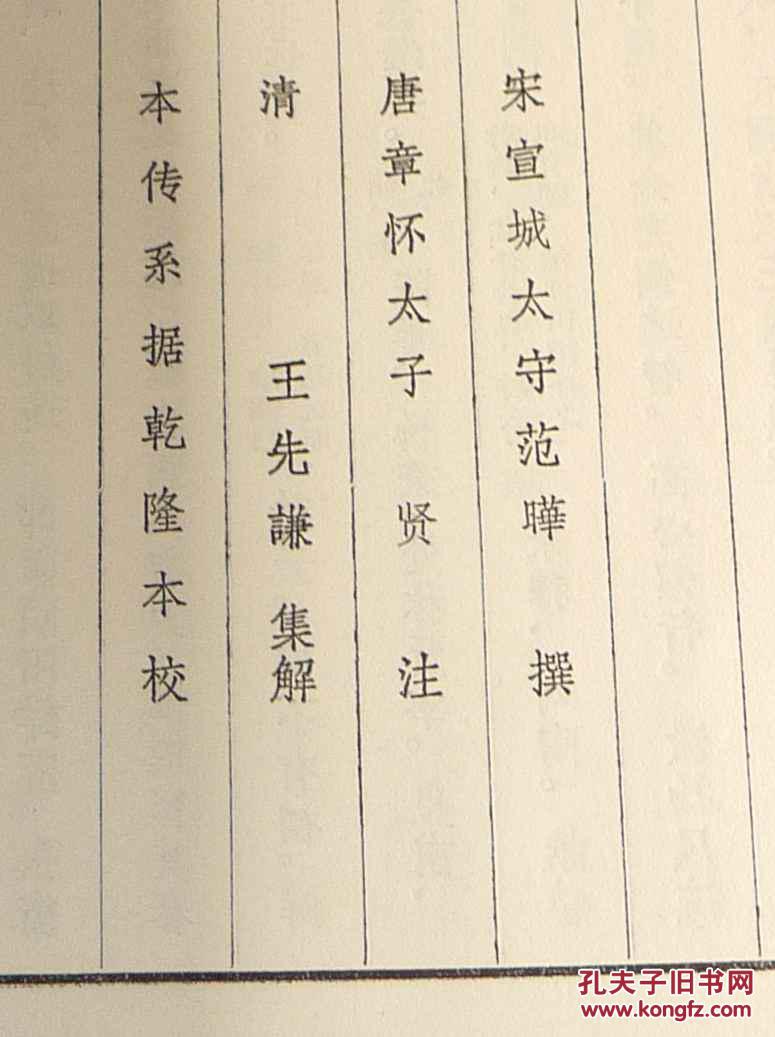 宋宣城太守范曄 撰
唐章怀太子 贤 注
清 王先謙 集解
本传系据乾隆本校
孔夫子旧书网
www.kongfz.com